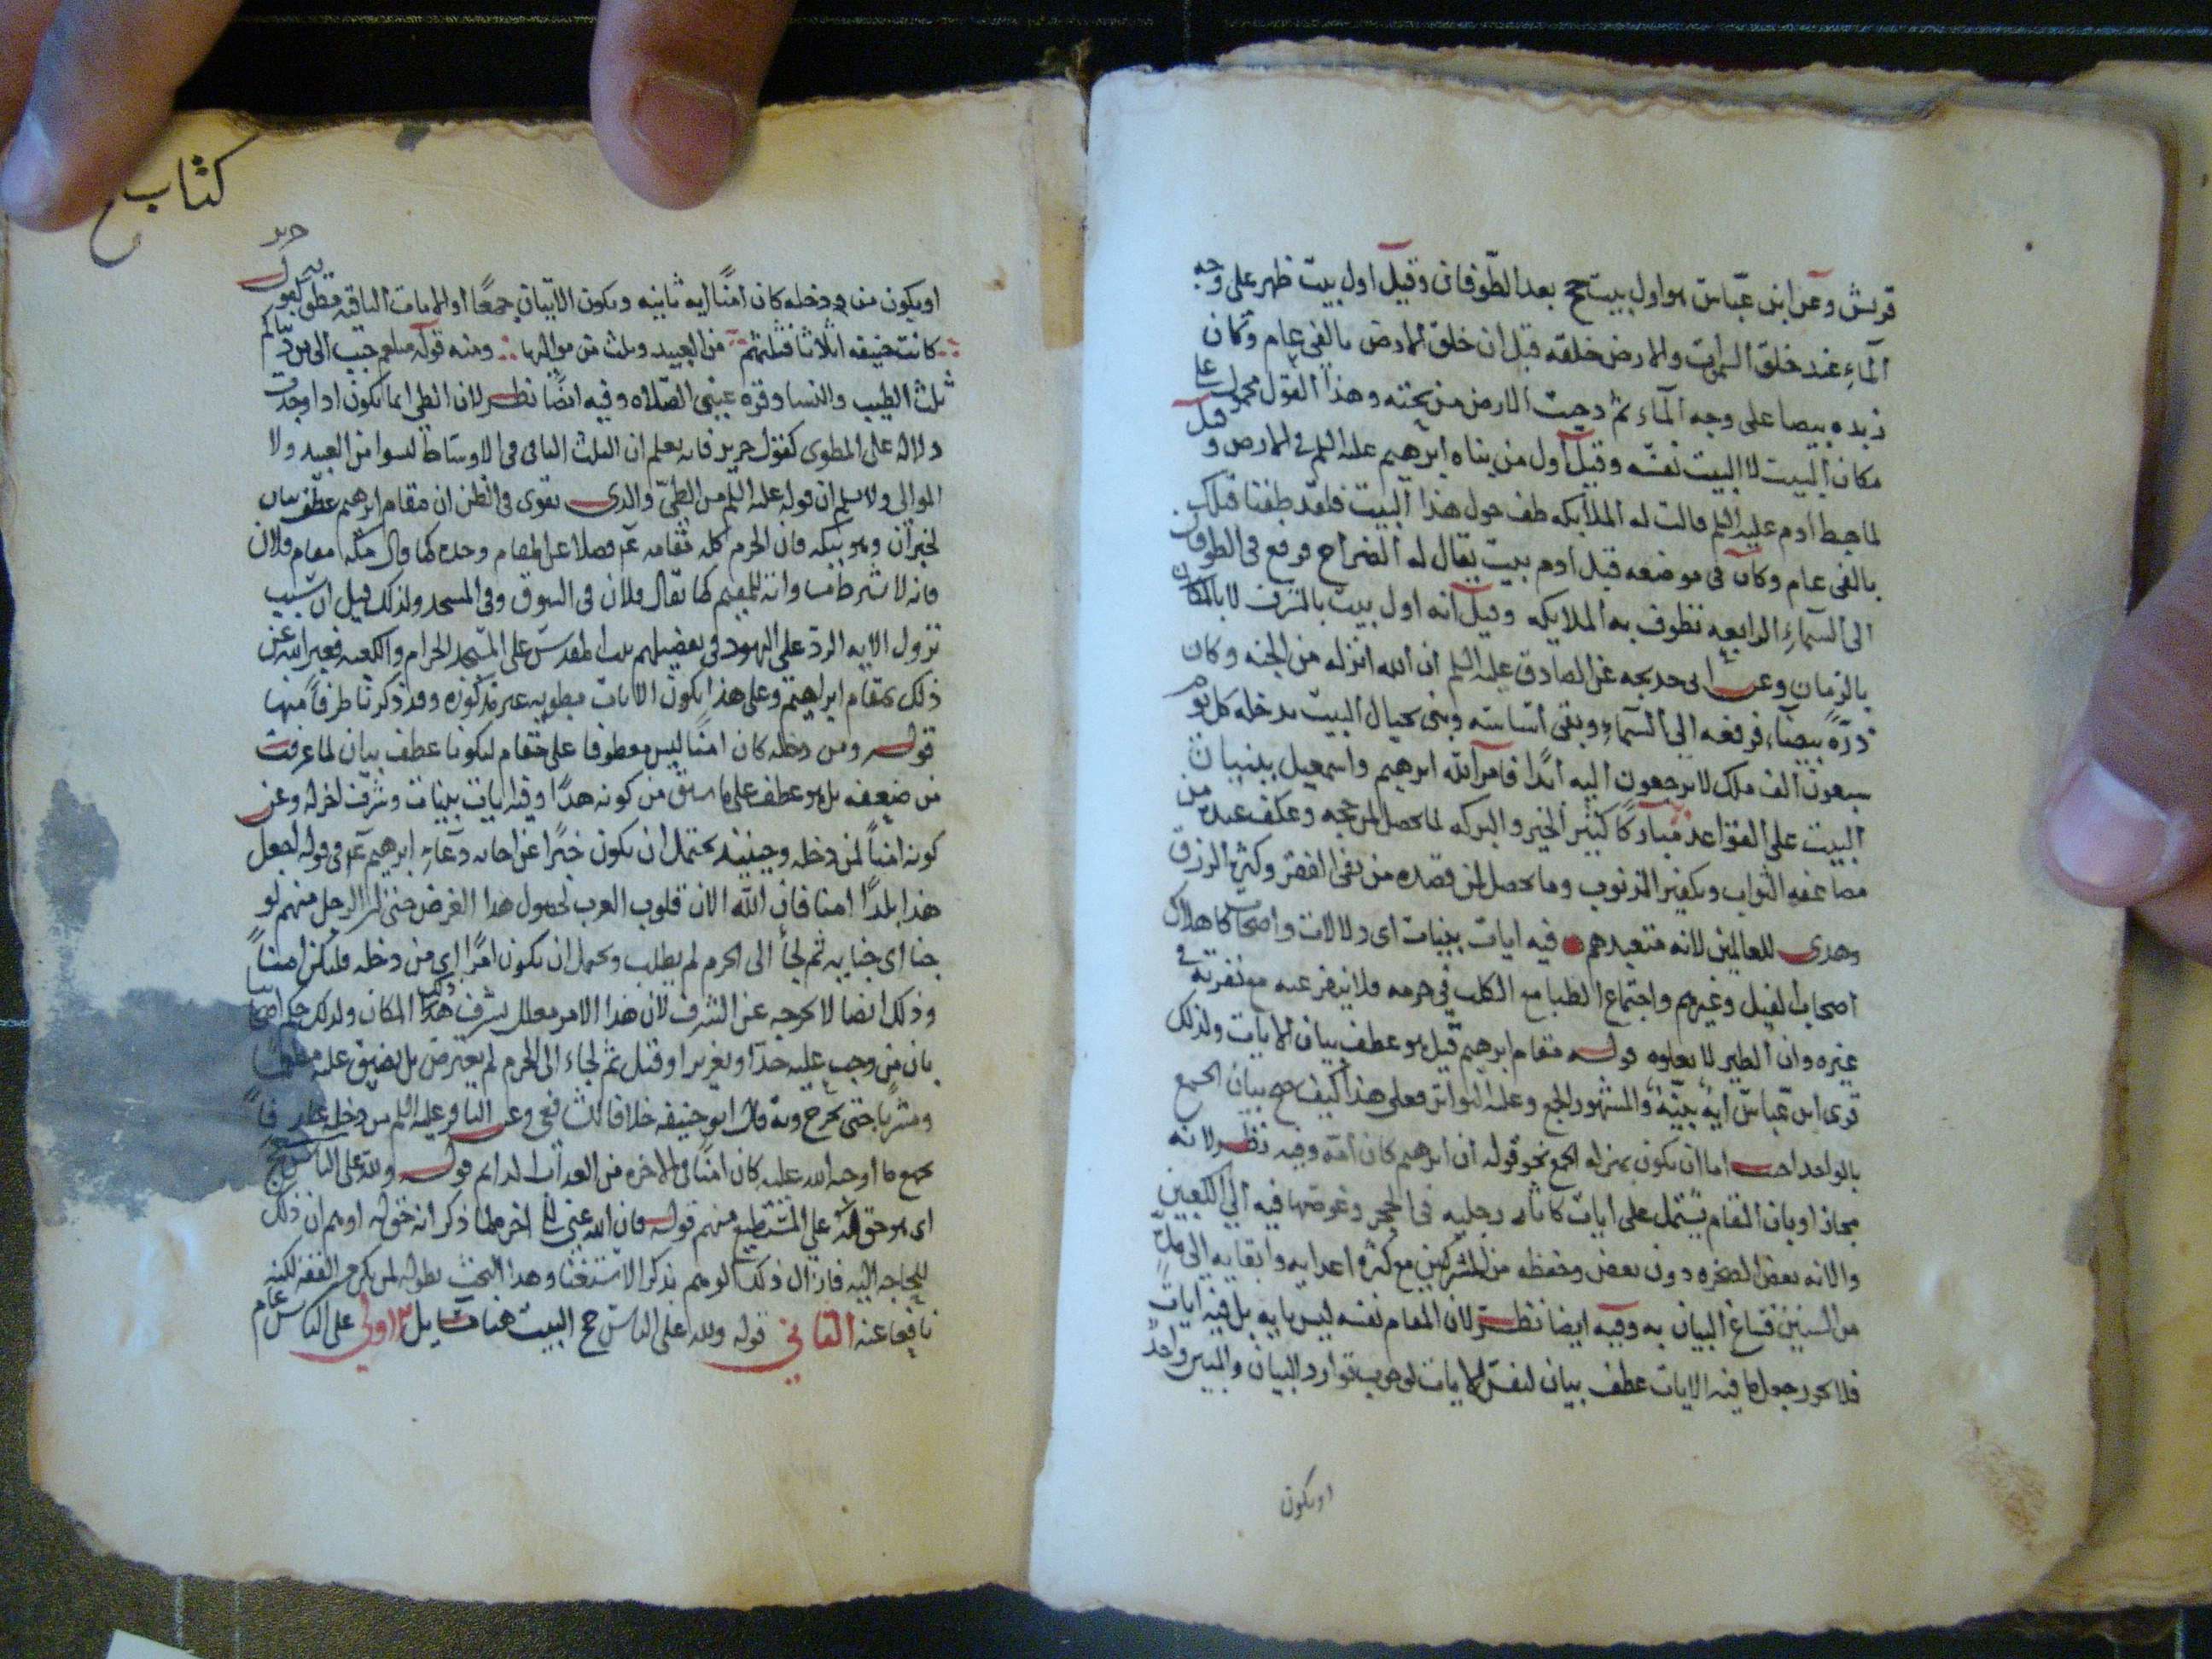 قريش وعن ابن عباس هو اول بيت حج بعد الطوفان وقيل اول بيت ظهر على وجه
الماء عند خلق السموات والارض خلقه قبل ان خلق الارض بالفى عام وكان
زبده بيضا على وجه الماء ثم دحيت الارض من تحته وهذا القول محمول على
مكان البيت لا البيت نفسه وقيل اول من بناه ابرهيم عليه السلم فى الارض و قيل
لما هبط ادم عليه السلم قالت له الملائكه طف حول هذا البيت فلقد طفنا قبلك
بالفى عام وكان فى موضعه قبل ادم بيت يقال له الضراح فرفع فى الطوفان
الى السماء الرابعه تطوف به الملايكه وقيل انه اول بيت بالشرف لا بالمكان
بالزمان وعن ابى خديجه عن الصادق عليه السلم ان الله انزله من الجنه وكان
درّة بيضاء فرفعه الى السماء وبقى اساسه وبنى بحيال البيت يدخله كل يوم
سبعون الف ملك لا يرجعون اليه ابدا فامر الله ابرهيم واسمعيل ببنيان
البيت على القواعد مباركا كثير الخير والبركه لما يحصل لمن حجه وعكف عنده من
مضاعفه الثواب وتكفير الذنوب وما يحصل لمن قصده من نفى الفقر وكثره الرزق
وهدى للعالمين لانه متعبدهم فيه ايات بينات اى دلالات واضحات كاهلاك
اصحاب الفيل وغيرهم واجتماع الظبا مع الكلب فى حرمه فلا ينفر عنه مع نفرته فى
غيره وان الطير لا يعلوه قوله مقام ابرهيم قيل هو عطف بيان الايات ولذلك
قرى ابن عباس ايه بينه والمشهور الجمع وعليه التواتر فعلى هذا كيف صح بيان الجمع
بالواحد اجيب اما ان يكون بمنزله الجمع نحو قوله ان ابرهيم كان امه وفيه نظر لانه
مجاز او بان المقام يشتمل على ايات كاثار رجليه فى الحجر وغوصهما فيه الى الكعبين
والانه بعض الصخره دون بعض وحفظه من المشركين مع كثره اعدايه وابقايه الى مده
من السنين فساغ البيان به وفيه ايضا نظر لان المقام نفسه ليس بايه بل فيه ايات
فلا يجوز جعل ما فيه الايات عطف بيان لنفس الايات لوجوب توارد البيان والمبين واحد
او يكون
كتاب
جرير
او يكون من ودخله كان امنا ايه ثانيه ويكون الايتان جمعا او الايات الباقيه مطويه كقول
كانت حنيفه اثلاثا فثلثهم من العبيد وثلث من مواليها ومنه قوله صلعم حبب الى من دنياكم
ثلث الطيب والنسا وقره عينى الصلاه وفيه ايضا نظر لان الطى انما يكون اذا وجدت
دلاله على المطوى كقول جرير فانه يعلم ان الثلث الباقى فى الاوساط ليسوا من العبيد ولا
الموالى ولا يسلم ان قوله عليه السلم من الطى والذى يقوى فى الظن ان مقام ابرهيم عطف بيان
لخبر ان وهو ببكه فان الحرم كله مقامه عم فضلا عن المقام وحده كما يقال مكه مقام فلان
فانه لا شرط مماسه للمقيم كما يقال فلان فى السوق وفى المسجد ولذلك قيل ان سبب
نزول الايه الرد على اليهود فى تفضيلهم بيت المقدس على المسجد الحرام والكعبه فعبر الله عن
ذلك بمقام ابراهيم وعلى هذا يكون الايات مطويه غير مذكوره وقد ذكرنا طرفا منها
قوله ومن دخله كان امنا ليس معطوفا على مقام ليكونا عطف بيان لما عرفت
من ضعفه بل هو عطف على ما سبق من كونه هدا وفيه ايات بينات وشرف اخر له وعن
كونه امنا لمن دخله وحينئذ يحتمل ان يكون خبرا عن اجابه دعاء ابرهيم عم فى قوله اجعل
هذا بلدا امنا فان الله الان قلوب العرب لحصول هذا الغرض حتى ان الرجل منهم لو
جنا اى جنايه ثم لجأ الى الحرم لم يطلب ويحتمل ان يكون امرا اى من دخله فليكن امنا
وذلك ايضا لا يخرجه عن الشرف لان هذا الامر معلل بشرف ذلك المكان ولذلك حكم اصحابنا
بان من وجب عليه حدا او تعزيرا او قتل ثم لجاء الى الحرم لم يعترض بل يضيق عليه مطعما
ومشربا حتى يخرج وبه قال ابو حنيفه خلافا للشافعى وعن الباقر عليه السلم من دخله عارفا
بجميع ما اوجبه الله عليه كان امنا فى الاخره من العذاب الدايم قوله ولله على الناس حج
اى هو حق لله على المستطيع منهم قوله فان الله غنى الى اخره لما ذكر انه حق له اوهم ان ذلك
للحاجه اليه فازال ذلك الوهم بذكر الاستغنا وهذا البحث بطوله لم يكن من الفقه لكنه
نافعا عنه الثانى قوله ولله على الناس حج البيت هنا مسايل ا اولى على الناس عام